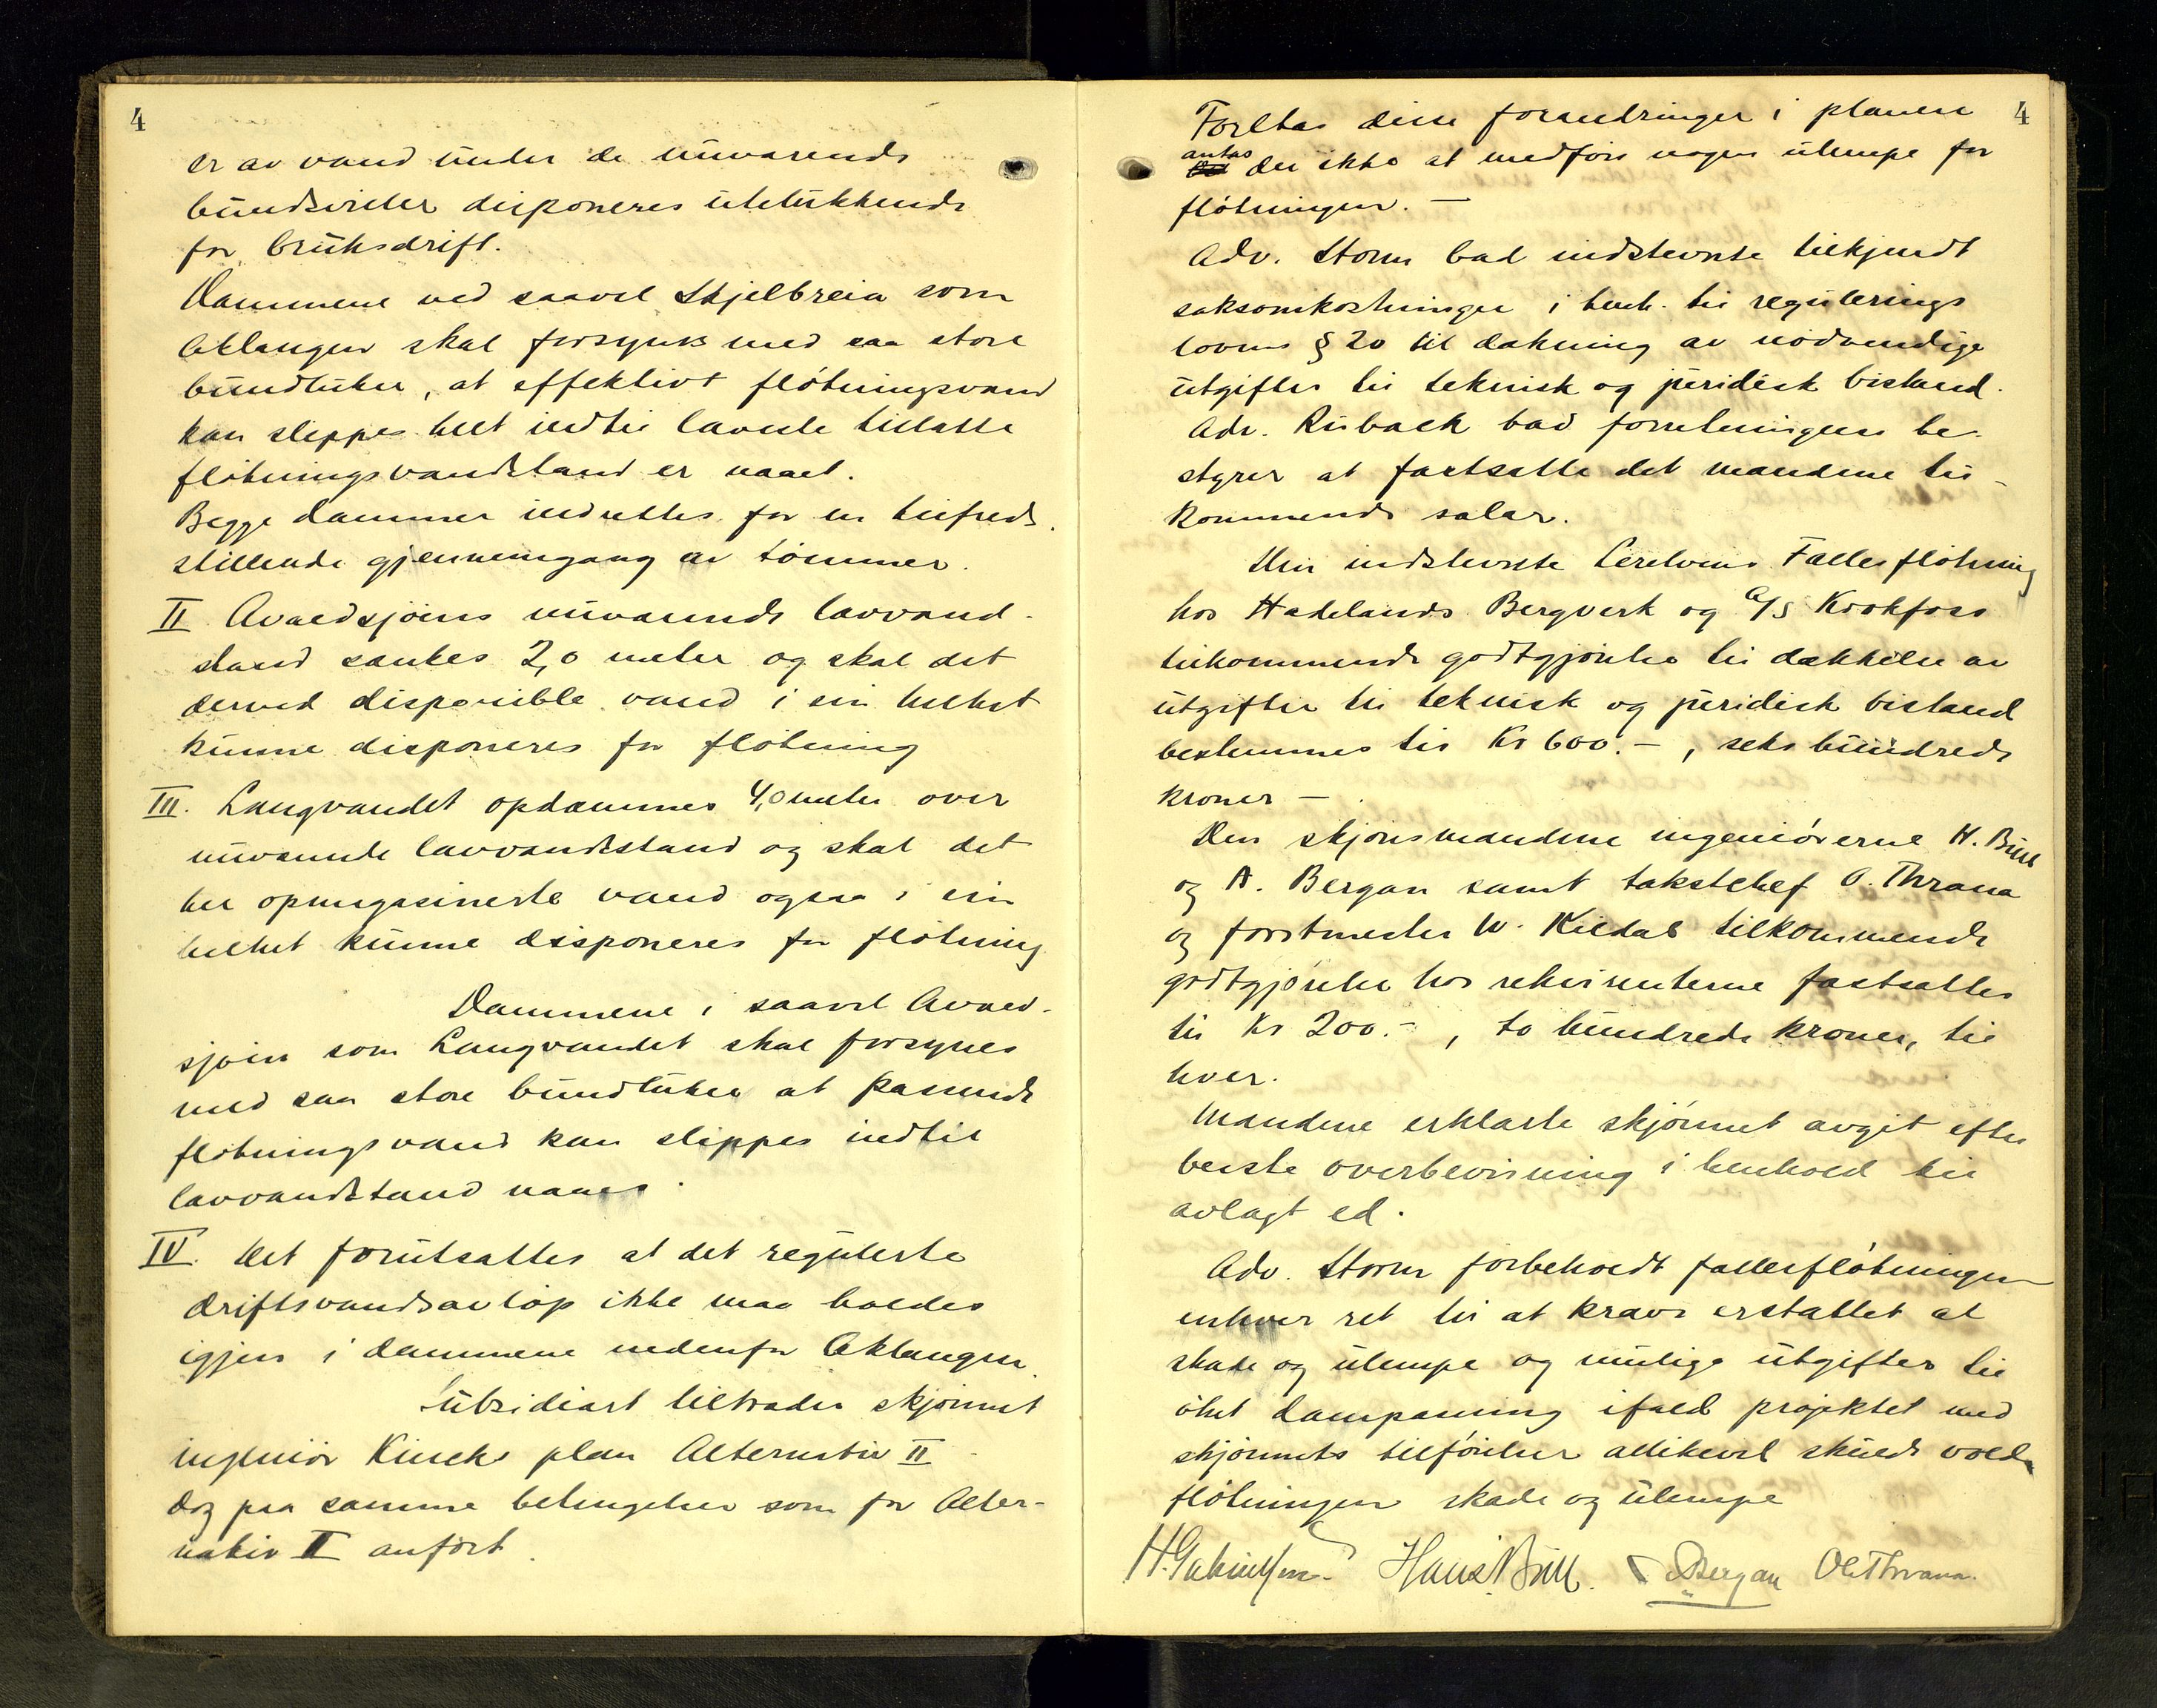 4
er av vand under de nuværende
bundsviller disponeres utelukkende
for bruksdrift.
Dammene ved saavel Skjelbreia som
Aklangen skal forsynes med saa store
bundluker, at effektivt flötningsvand
kan slippes helt indtil laveste tillatte
flötningsvandstand er naaet.
Begge dammer indrettes for en tilfreds
stillende gjennemgang av tömmer.
II Avaldsjöens nuværende lavvand-
stand sænkes 2,0 meter og skal det
derved disponible vand i sin helhet
kunne disponeres for flötning
III. Langvandet opdæmmes 4,0 meter over
nuværende lavvandstand og skal det
her opmagasinerte vand ogsaa i sin
helhet kunne disponeres for flötning
Dammene i saavel Avald-
sjöen som Langvandet skal forsynes
med saa store bundluker at passende
flötningsvand kan slippes indtil
lavvandstand naaes.
IV. Det forutsættes at det regulerte
driftsvandsavlöp ikke maa holdes
igjen i dammene nedenfor Aklangen
Subsidiært tiltræder skjönnet
ingeniör Kincks plan Alternativ II
dog paa samme betingelser som for Alter-
nativ II anfört.
4
Foretas disse forandringer i planen
antas
der ikke at medföre nogen ulempe for
flötningen. —
Adv. Storm bad indstevnte tilkjendt
saksomkostninger i henh. til regulerings
lovens § 20 til dækning av nödvendige
utgifter til teknisk og juridisk bistand.
Adv. Risbaek bad forretningens be-
styrer at fastsætte det mændene til-
kommende salær.
Den indstevnte Leretvens Fællesflötning
hos Hadelands Bergverk og A/S Krokfoss
tilkommende godtgjörelse til dækkelse av
utgifter til teknisk og juridisk bistand
bestemmes til Kr 600.-, seks hundrede
kroner —
Den skjönsmændene ingeniörerne H. Bull
og A. Bergan samt takstchef O. Thrana
og forstmester W. Kildal tilkommende
godtgjörelse hos rekvirenterne fastsættes
til Kr 200.-, to hundrede kroner, til
hver.
Mændene erklærte skjönnet avgit efter
beste overbevisning i henhold til
avlagt ed.
Adv. Storm forbeholdt fællesflötningen
enhver ret til at kræve erstattet al
skade og ulempe og mulige utgifter til
öket dampasning ifald projektet med
skjönnets tilföielser allikevel skulde volde
flötningen skade og ulempe
Hans Bull. Bergan Ole Thrana.